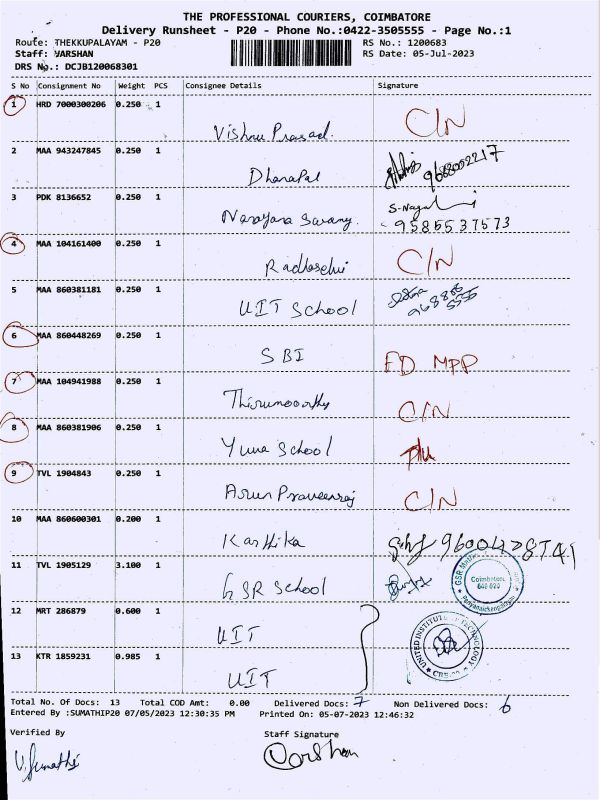 THE PROFESSIONAL COURIERS, COIMBATORE
Delivery Runsheet - P20 - Phone No.:0422-3505555 - Page No.:1
Route: THEKKUPALAYAM - P20 RS No.: 1200683
Staff: VARSHAN RS Date: 05-Jul-2023
DRS No.: DCJB120068301
S No Consignment No Weight PCS Consignee Details Signature
1 HRD 7000300206 0.250 1
Vishnu Prasad. C/N
2 MAA 943247845 0.250 1
Dhanapal 9688002217
3 PDK 8136652 0.250 1 S-Nagal
Narayana Swamy. 9585537573
4 MAA 104161400 0.250 1
C/N
5 MAA 860381181 0.250 1
UIT School
6 MAA 860448269 0.250 1
SBI ED MPP
7 MAA 104941988 0.250 1
Thirumoorthy C/N
8 MAA 860381906 0.250 1
Yuva School
9 TVL 1904843 0.250 1
Arun Praveenraj C/N
10 MAA 860600301 0.200 1
Karthika
11 TVL 1905129 3.100 1
GSR School
Coimbatore
12 MRT 286879 0.600 1
UIT
UNITED INSTITUTE OF TECHNOLOGY
13 KTR 1859231 0.985 1
UIT
Total No. Of Docs: 13 Total COD Amt: 0.00 Delivered Docs: 7 Non Delivered Docs: 6
Entered By :SUMATHIP20 07/05/2023 12:30:35 PM Printed On: 05-07-2023 12:46:32
Verified By Staff Signature
V. Sumathi Varshan